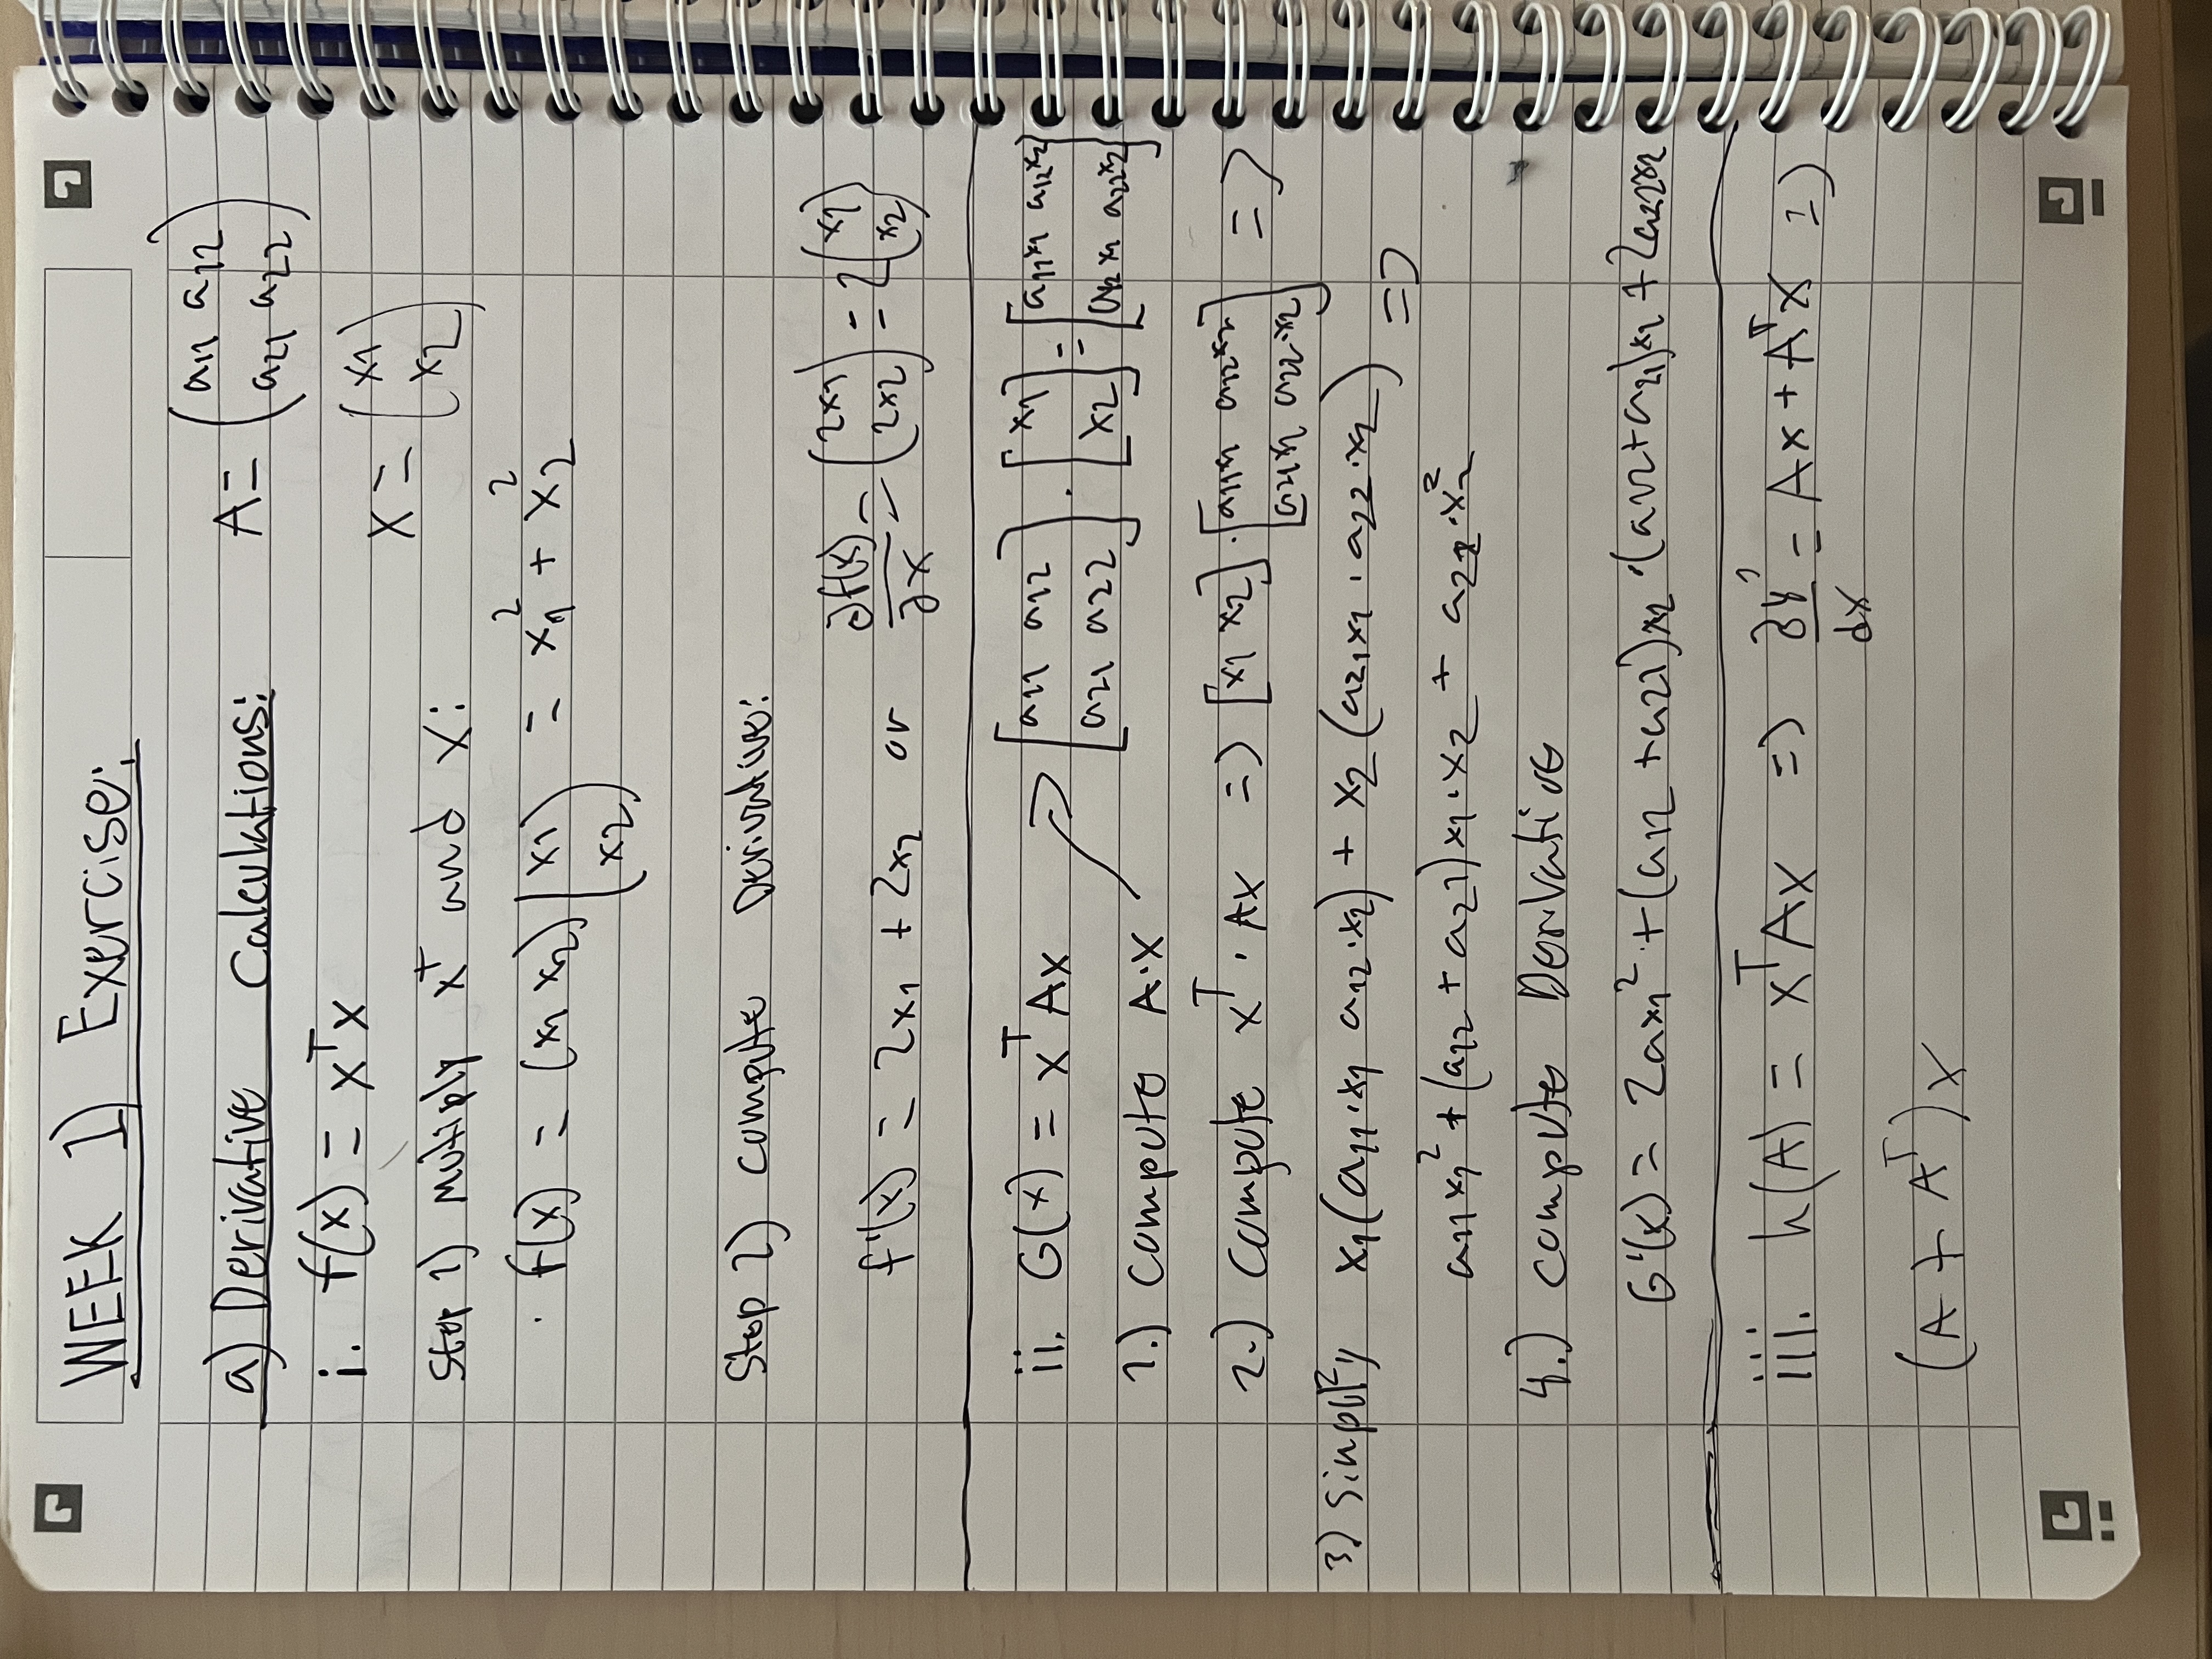 WEEK 1) Exercise:
a) Derivative Calculations:
A = (a11 a12
a21 a22)
i. f(x) = x^T x
x = (x1
x2)
Step 1) Multiply x^T and x:
f(x) = (x1 x2) (x1
x2) = x1^2 + x2^2
Step 2) compute Derivative:
f'(x) = 2x1 + 2x2 or ∂f(x)/∂x = (2x1
2x2) = 2(x1
x2)
ii. G(x) = x^T Ax
[a11 a12
a21 a22] · [x1
x2] = [a11x1 a12x2
a12x1 a22x2]
1.) compute A·x
2.) compute x^T · Ax => [x1 x2] · [a11x1 a12x2
a21x1 a22·x2] =>
3) Simplify x1(a11·x1 a12·x2) + x2(a21x1 · a22·x2) =>
a11x1^2 + (a12 + a21)x1·x2 + a22·x2^2
4.) compute Derivative
G'(x) = 2ax1^2 + (a12 + a21)x2 · (a12+a21)x2 + 2a22x2
iii. h(A) = x^T Ax => ∂y/dx = Ax + A^T x =>
(A + A^T)x